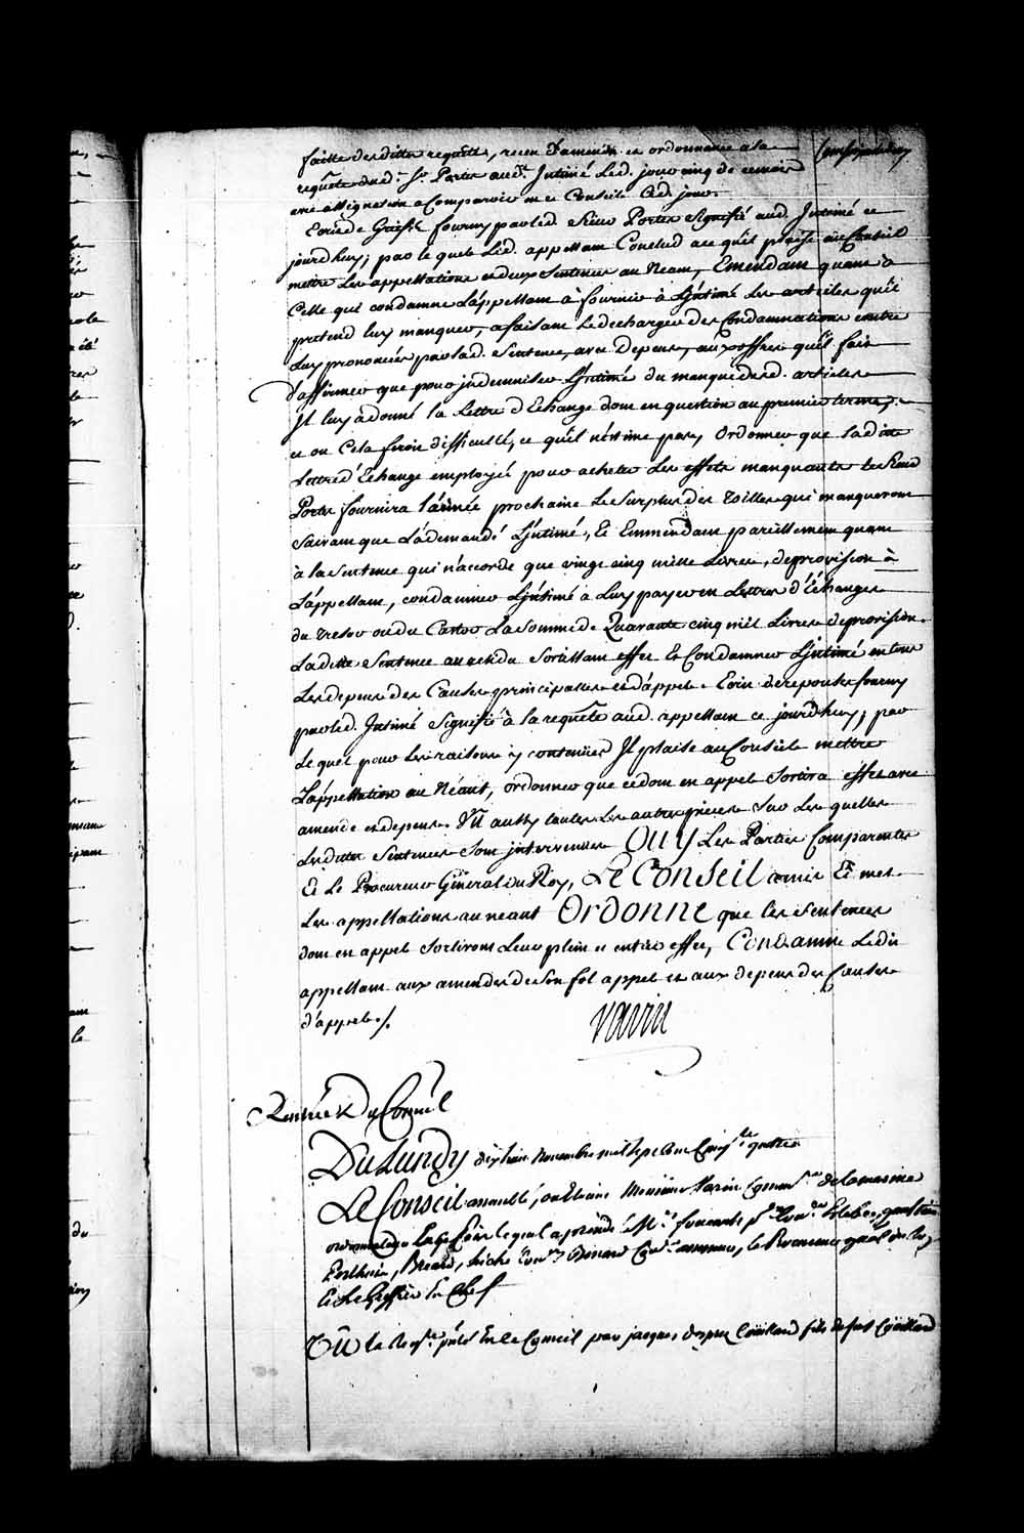 faitte desdittes requettes, recu d'amende et ordonnance a la
requête dud. Sr. Porter aud. Intimé led. jour cinq de ce mois
avec assignation a Comparoir en ce Conseil Ced. jour.
Ecrit de Griefs fourny par led. Sieur Porter Signifié aud. Intimé ce
jourd'huy, par le quel Led. appellant Conclud ace qu'il plaise au Conseil
mettre Les appellations et deux Sentences au Neant, Emendant quant à
Celle qui condamne L'appellant à fournir à L'jntimé Les articles qu'il
pretend luy manquer, afaisant Le decharger des Condamnations contre
Luy prononcées par lad. Sentence, avec depens, aux offres qu'il fait
d'affirmer que pour jndemniser L'jntimé du manque desd. articles
Jl luy a donné la Lettre d'Echange dont en question au premier terme,
et ou Cela feroit difficulté, ce qu'il n'estime pas, Ordonner que ladite
Lettre d'Echange employée pour acheter Les effets manquants le Sieur
Porter fournira l'année prochaine Le Surplus des Toilles qui manqueront
Suivant que L'a demandé L'jntimé, Et Emmendant pareillement quant
à la Sentence qui n'accorde que vingt cinq mille Livres, de provision à
L'appellant, condamner L'jntimé a Luy payer en Lettres d'Echange
du tresor ou du Castor La Somme de Quarante cinq mil Livres de provision
Ladite Sentence au residu Sortissant effet Et Condamner L'jntimé en tous
Les depens des Causes principalles et d'appel. Ecrit de reponses fourny
par led. Intimé Signifié à la requête aud. appellant ce jourd'huy, par
Le quel pour Les raisons y contenües Jl plaise au Conseil mettre
L'appellation au Néant, ordonner que ce dont en appel Sortira effet avec
amende et depens. Vû aussy toutes Les autres pieces Sur Les quelles
Lesdittes Sentences Sont jntervenues OUY Les Parties Comparentes
Et Le Procureur Général du Roy, Le Conseil a mis Et met
Les appellations au neant Ordonne que les Sentences
dont en appel Sortiront Leur plein et entier effet, Condamne Ledit
appellant aux amendes de Son fol appel et aux depens des Causes
d'appel./.
Varin
Rentrée du Conseil
Du Lundy dix huit Novembre mil sept cent Cinqte. quatre
Le Conseil assemblé, ou Etoient Monsieur Varin
Et Le Greffier En Chef
Vû la Reqte. pnté En Ce Conseil par jacques Couillard fils de feu Couillard